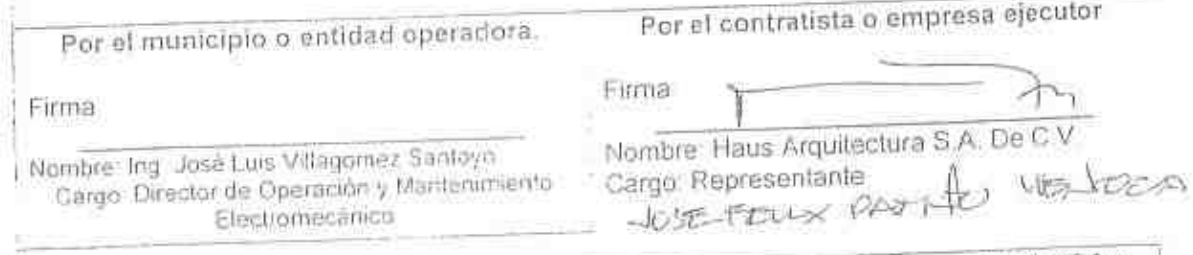 Por el municipio o entidad operadora.
Firma
Nombre: Ing. José Luis Villagomez Santoyo
Cargo: Director de Operación y Mantenimiento
Electromecánico
Por el contratista o empresa ejecutor
Firma
Nombre: Haus Arquitectura S.A. De C.V
Cargo: Representante
JOSE FELIX PATIÑO